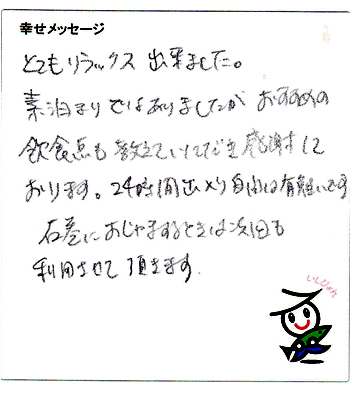 幸せメッセージ
とてもリラックス 出来ました。
素泊まりではありましたが おすすめの
飲食点も 教えていただき感謝して
おります。24時間出入り自由は有難いです
石巻におじゃまするときは次回も
利用させて頂きます.